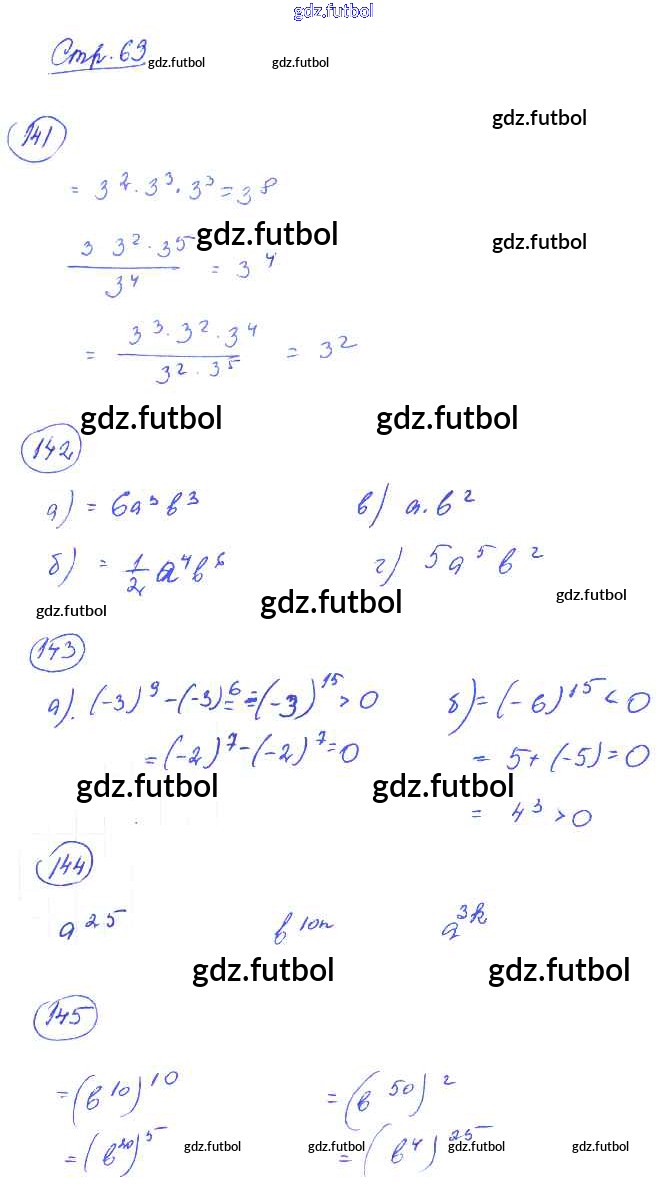 gdz.futbol
Стр. 63 gdz.futbol gdz.futbol
gdz.futbol
141
= 3² · 3³ · 3³ = 3⁸
gdz.futbol
gdz.futbol
3 3² · 3⁵ / 3⁴ = 3⁴
= 3³ · 3² · 3⁴ / 3² · 3⁵ = 3²
gdz.futbol gdz.futbol
142
а) = 6a³b³ в) a · b²
б) = 1/2 a⁴b⁶ г) 5a⁵b²
gdz.futbol gdz.futbol gdz.futbol
143
а). (-3)⁹ - (-3)⁶ = = (-3)¹⁵ > 0 б) = (-6)¹⁵ < 0
= (-2)⁷ - (-2)⁷ = 0 = 5 + (-5) = 0
gdz.futbol gdz.futbol
= 4³ > 0
144
a²⁵ b¹⁰ⁿ a³ᵏ
gdz.futbol gdz.futbol
145
= (b¹⁰)¹⁰ = (b⁵⁰)²
= (b²⁰)⁵ gdz.futbol gdz.futbol = (b⁴)²⁵ gdz.futbol gdz.futbol